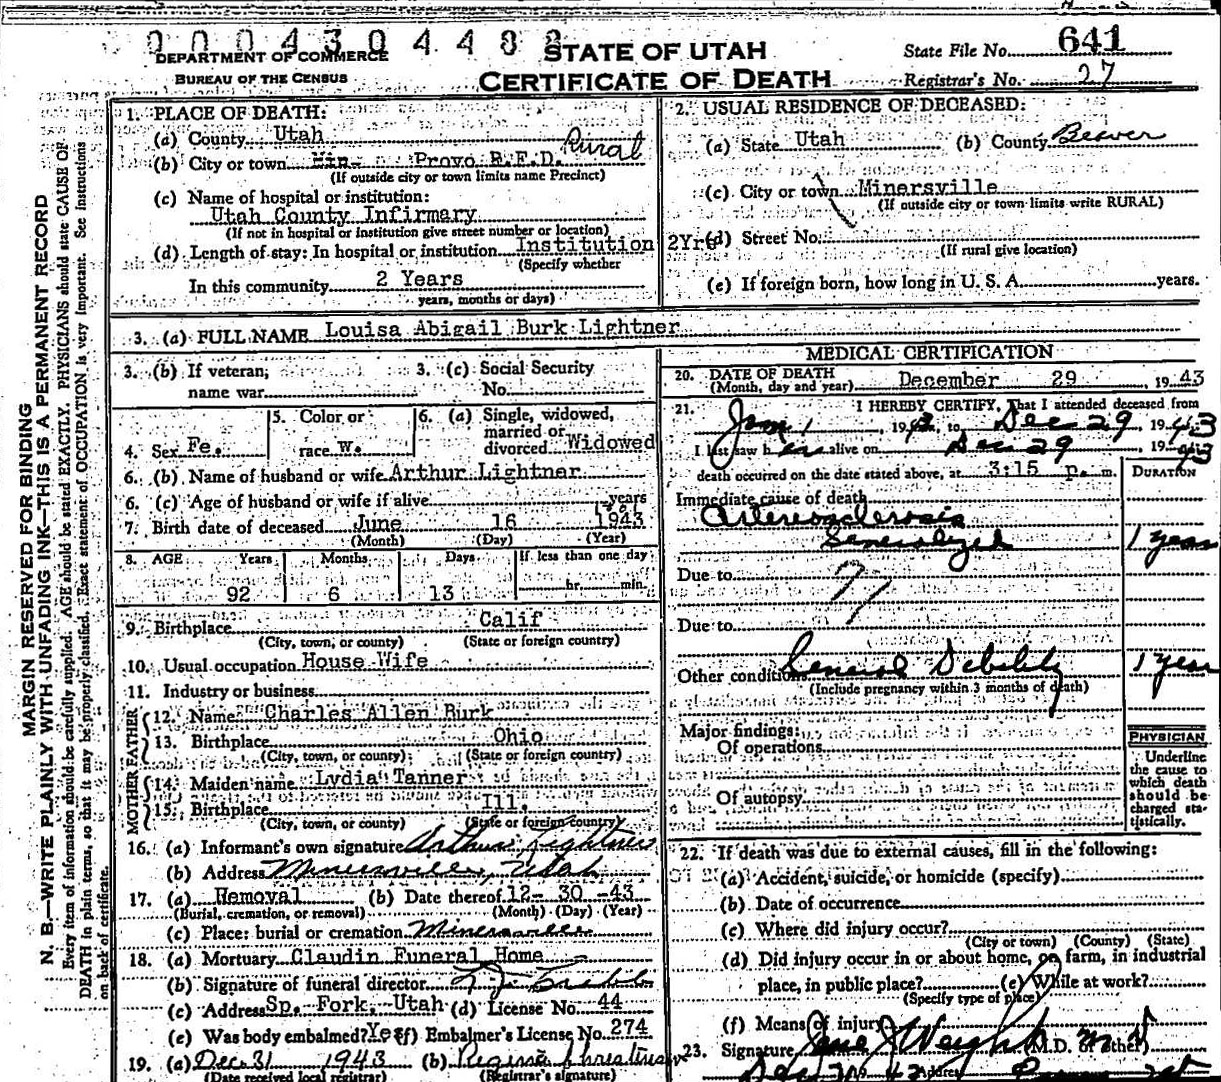 0004304488
DEPARTMENT OF COMMERCE
BUREAU OF THE CENSUS
STATE OF UTAH
CERTIFICATE OF DEATH
State File No. 641
Registrar's No. 27
MARGIN RESERVED FOR BINDING
N. B.—WRITE PLAINLY WITH UNFADING INK—THIS IS A PERMANENT RECORD
Every item of information should be carefully supplied. AGE should be stated EXACTLY. PHYSICIANS should state CAUSE OF
DEATH in plain terms, so that it may be properly classified. Exact statement of OCCUPATION is very important. See instructions
on back of certificate.
1. PLACE OF DEATH:
(a) County Utah
(b) City or town Provo R.F.D. Rural
(If outside city or town limits name Precinct)
(c) Name of hospital or institution:
Utah County Infirmary
(If not in hospital or institution give street number or location)
(d) Length of stay: In hospital or institution Institution 2Yrs
(Specify whether
In this community 2 Years
years, months or days)
2. USUAL RESIDENCE OF DECEASED:
(a) State Utah (b) County Beaver
(c) City or town Minersville
(If outside city or town limits write RURAL)
(d) Street No.
(If rural give location)
(e) If foreign born, how long in U. S. A. years.
3. (a) FULL NAME Louisa Abigail Burk Lightner
3. (b) If veteran, name war
3. (c) Social Security No.
4. Sex Fe.
5. Color or race W.
6. (a) Single, widowed, married or divorced Widowed
6. (b) Name of husband or wife Arthur Lightner
6. (c) Age of husband or wife if alive years
7. Birth date of deceased June 16 1943
(Month) (Day) (Year)
8. AGE Years Months Days If less than one day
92 6 13 hr. min.
9. Birthplace Calif
(City, town, or county) (State or foreign country)
10. Usual occupation House Wife
11. Industry or business
FATHER
12. Name Charles Allen Burk
13. Birthplace Ohio
(City, town, or county) (State or foreign country)
MOTHER
14. Maiden name Lydia Tanner
15. Birthplace Ill.
(City, town, or county) (State or foreign country)
16. (a) Informant's own signature Arthur Lightner
(b) Address Minersville, Utah
17. (a) Removal (b) Date thereof 12- 30 -43
(Burial, cremation, or removal) (Month) (Day) (Year)
(c) Place: burial or cremation Minersville
18. (a) Mortuary Claudin Funeral Home
(b) Signature of funeral director
(c) Address Sp. Fork, Utah (d) License No. 44
(e) Was body embalmed? Yes (f) Embalmer's License No. 274
19. (a) Dec 31 1943 (b)
(Date received local registrar) (Registrar's signature)
MEDICAL CERTIFICATION
20. DATE OF DEATH
(Month, day and year) December 29, 1943
21. I HEREBY CERTIFY, That I attended deceased from
Jan 1, 19 to Dec 29, 1943
I last saw her alive on Dec 29, 1943
death occurred on the date stated above, at 3:15 p. m.
DURATION
Immediate cause of death
Arteriosclerosis
Generalized 1 year
Due to
Due to
Other conditions General Debility 1 year
(Include pregnancy within 3 months of death)
Major findings:
Of operations
Of autopsy
PHYSICIAN
Underline
the cause to
which death
should be
charged sta-
tistically.
22. If death was due to external causes, fill in the following:
(a) Accident, suicide, or homicide (specify)
(b) Date of occurrence
(c) Where did injury occur?
(City or town) (County) (State)
(d) Did injury occur in or about home, on farm, in industrial
place, in public place? (e) While at work?
(Specify type of place)
(f) Means of injury
23. Signature (M.D. or other)
Address